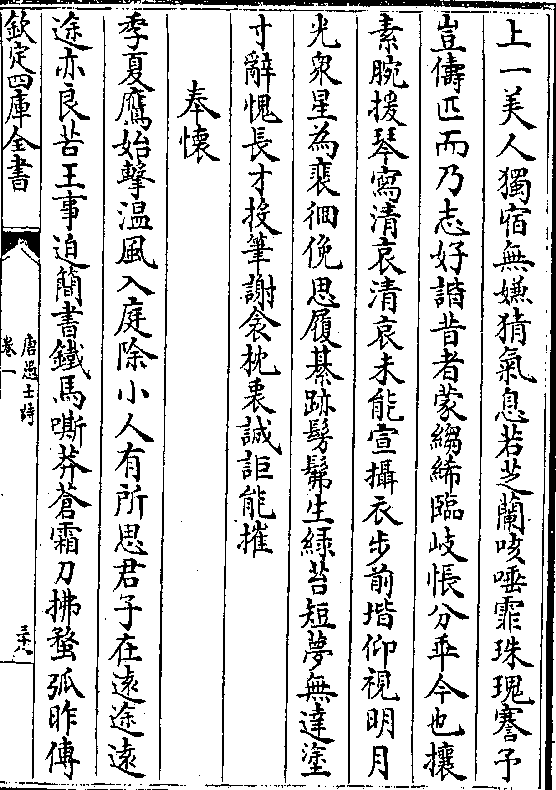 上一美人獨宿無嫌猜氣息若芝蘭咳唾霏珠瑰謇予
豈儔匹而乃志好諧昔者蒙縐絺臨岐悵分乖今也攘
素腕援琴寫清哀清哀未能宣攝衣步前堦仰視明月
光衆星為裴徊俛思履綦跡髣髴生緑苔短夢無達塗
寸辭愧長才投筆謝衾枕衷誠詎能摧
奉懐
季夏鷹始擊溫風入庭除小人有所思君子在遠途遠
途亦良苦王事迫簡書鐵馬嘶莽蒼霜刀拂蝥弧昨傳
欽定四庫全書
唐愚士詩
卷一
三十八